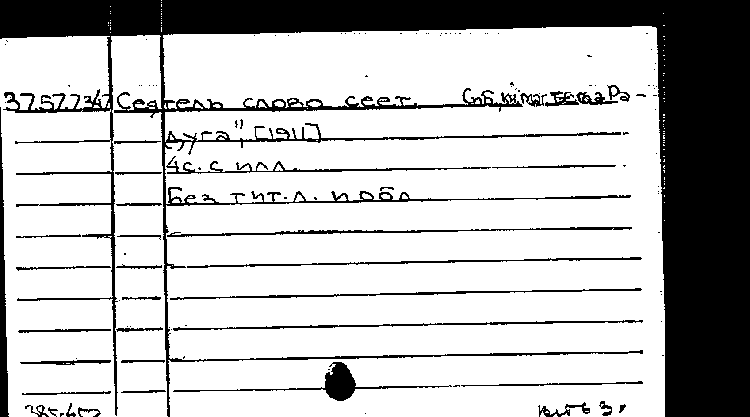 37.57.7.347 Сеятель слово сеет. Спб, кн. маг. "Ра-
дуга", [1911]
4с. с илл.
Без тит. л. и обл